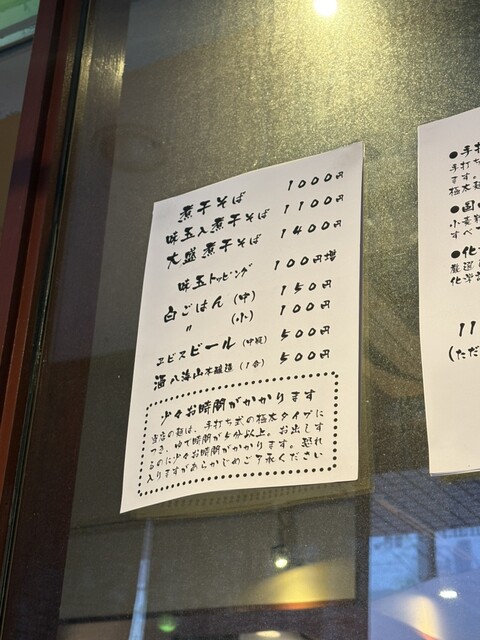 煮干そば 1000円
味玉入煮干そば 1100円
大盛煮干そば 1400円
味玉トッピング 100円増
白ごはん(中) 150円
〃 (小) 100円
ヱビスビール(中瓶) 500円
酒 八海山本醸造(1合) 500円
少々お時間がかかります
当店の麺は、手打ち式の極太タイプに
つき、ゆで時間が5分以上。お出しす
るのに少々お時間がかかります。恐れ
入りますがあらかじめご了承ください
●手打
手打ち
す。
極太麺
●国
小麦粉
すべ
●化
厳選
化学調
11
(ただ